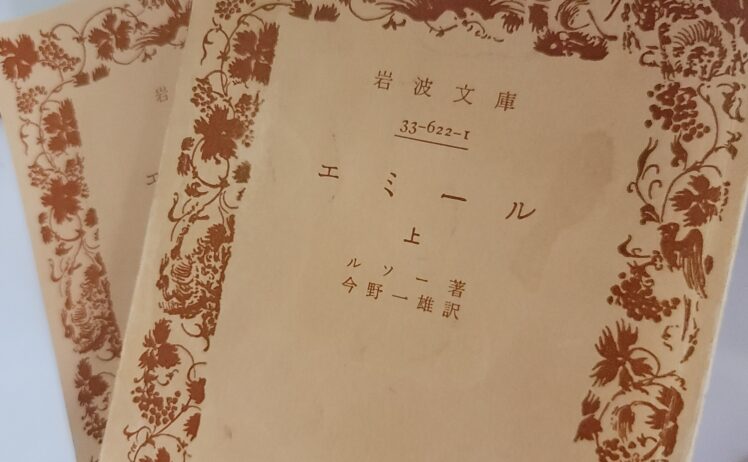 岩波文庫
33-622-1
エミール
上
ルソー著
今野一雄訳
岩
エ